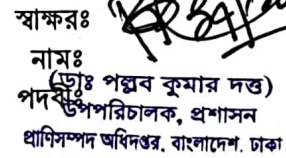 স্বাক্ষরঃ
নামঃ
(ডাঃ পল্লব কুমার দত্ত)
পদবীঃ
উপপরিচালক, প্রশাসন
প্রাণিসম্পদ অধিদপ্তর, বাংলাদেশ, ঢাকা